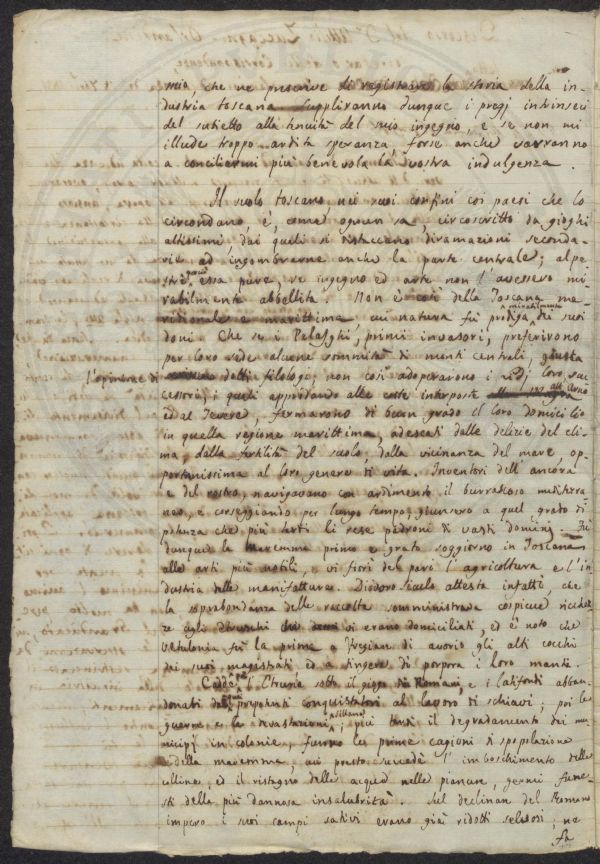 mia, che ne prescrive di registrare la storia della in-
dustria toscana. Suppliranno dunque i pregj intrinseci
del subietto alla tenuità del mio ingegno, e se non mi
illude troppo ardita speranza, forse anche varranno
a conciliarmi più benevola la vostra indulgenza.
Il suolo toscano, nei suoi confini coi paesi che lo
circondano, è, come ognun sa, circoscritto da gioghi
altissimi, dai quali si distaccano diramazioni seconda-
rie ad ingombrarne anche la parte centrale; alpe
stre essa pure, se ingegno ed arte non l'avessero mi-
rabilmente abbellita. Non è così della Toscana me-
ridionale e marittima, cui natura fu prodiga dei suoi
doni. Che se i Pelasghi, primi invasori, preferirono
per loro sede alcune sommità di monti centrali, giusta
l'opinione di dotti filologi, non così adoperarono i loro suc-
cessori, i quali approdando alle coste interposte all'Arno
ed al Tevere, fermarono di buon grado il loro domicilio
in quella regione marittima, adescati dalle delizie del cli-
ma, dalla fertilità del suolo, dalla vicinanza del mare, op-
portunissima al loro genere di vita. Inventori dell'ancora
e del rostro, navigavano con ardimento il burrascoso mediterra-
neo, e corseggiando per lungo tempo, giunsero a quel grado di
potenza che più tardi li rese padroni di vasti dominj. Fù
dunque la Maremma primo e grato soggiorno in Toscana
alle arti più nobili, e vi fiorì del pari l'agricoltura e l'in
dustria delle manifatture. Diodoro siculo attesta infatti, che
la soprabbondanza delle raccolte somministrava cospicue ricchez-
ze agli Etruschi vi erano domiciliati, ed è noto che
Vetulonia fu la prima a fregiar di avorio gli alti cocchi
dei suoi magistrati ed a tingere di porpora i loro manti.
Cadde l'Etruria sotto il giogo dei Romani, e i latifondi abban-
donati dai prepotenti conquistatori al lavoro di schiavi; poi le
guerre e le devastazioni sillane; più tardi il degradamento dei mu
nicipj in colonie, furono le prime cagioni di spopolazione
della maremma, cui presto succede l'imboschimento delle
colline ed il ristagno delle acque nelle pianure, germi fune-
sti della più dannosa insalubrità. Sul declinar del Romano
impero i suoi campi sativi erano già ridotti selvosi; ne
fa